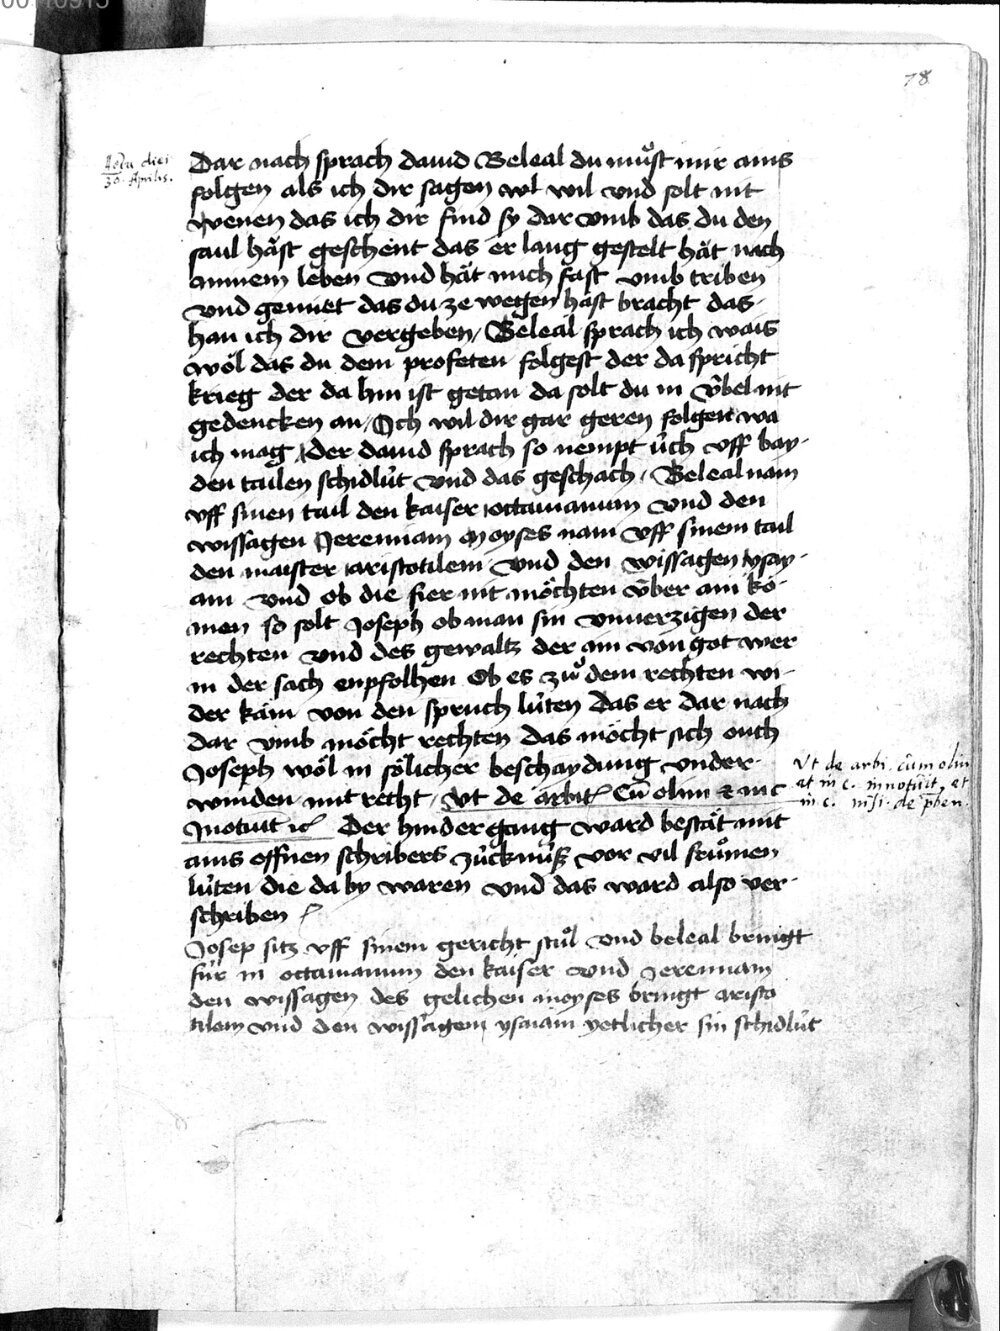 78
Acta diei
30. Aprilis.
Dar nach sprach dauid Beleal du muͦst mir ains
folgen als ich dir sagen wl wil vnd solt nit
wenen das ich dir find sy dar vmb das du den
saul häst geschent das er lang gestelt hät nach
minem leben vnd hät mich fast vmb triben
vnd gemiet das du ze wegen häst bracht das
han ich dir vergeben / Beleal sprach ich wais
wöl das du dem profeten folgest der da spricht
krieg der da hin ist getan da solt du in v̈bel nit
gedencken an / Och wil dir gar geren folgen wa
ich mag / Der dauid sprach so nempt üch vff bay-
den tailen schidlüt vnd das geschach / Beleal nam
vff sinen tail den kaiser octauianum vnd den
wissagen Jeremiam Moyses nam vff sinem tail
den maister aristotilem vnd den wissagen ysay-
am vnd ob die fier nit möchten v̈ber ain kö-
men so solt Joseph obman sin vnuerzigen der
rechten vnd des gewaltz der im von got wer
in der sach enpfolhen Ob es zuͦ dem rechten wi-
der käm von den spruch lüten Das er dar nach
dar vmb möcht rechten das möcht sich ouch
Joseph wöl in sölicher beschaydung vnder-
winden mit recht / Vt de arbit. Cū olim & in c
Jnotuit ic. Der hinder gang ward bestät mit
ains offnen schribers zücknüß vor vil fruͦmen
lüten die da by waren vnd das ward also ver-
schriben
Vt de arbi. cūm olim
et in c. innotuit, et
in c. nisi. de p̄ben.
Josep sitz vff sinem gericht stuͦl vnd beleal bringt
für in octauianum den kaiser vnd Jeremiam
den wissagen des gelichen moyses bringt aristo
tilem vnd den wissagem ysaiam yetlicher sin schidlüt